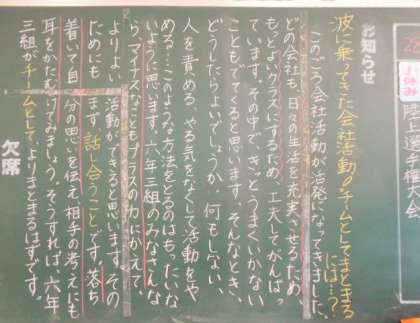 お知らせ
波に乗ってきた会社活動のチームとしてまとまる
には…?
このごろ会社活動が活発になってきました。
どの会社も、日々の生活を充実させるため、
もっとよいクラスにするため、工夫してがんばっ
ています。その中で、きっとうまくいかない
こともでてくると思います。そんなとき、
どうしたらよいでしょうか。何もしない、
人を責める、やる気をなくして活動をや
める…このような方法をとるのはもったいな
いように思います。六年三組のみなさんな
ら、マイナスなこともプラスの力にかえて
よりよい活動ができると思います。その
ためにもまず、話し合うことです。落ち
着いて自分の思いを伝え、相手の考えにも
耳をかたむけてみましょう。そうすれば、六年
三組がチームとしてよりまとまるはずです。
欠席
お休み
陸上選手権大会